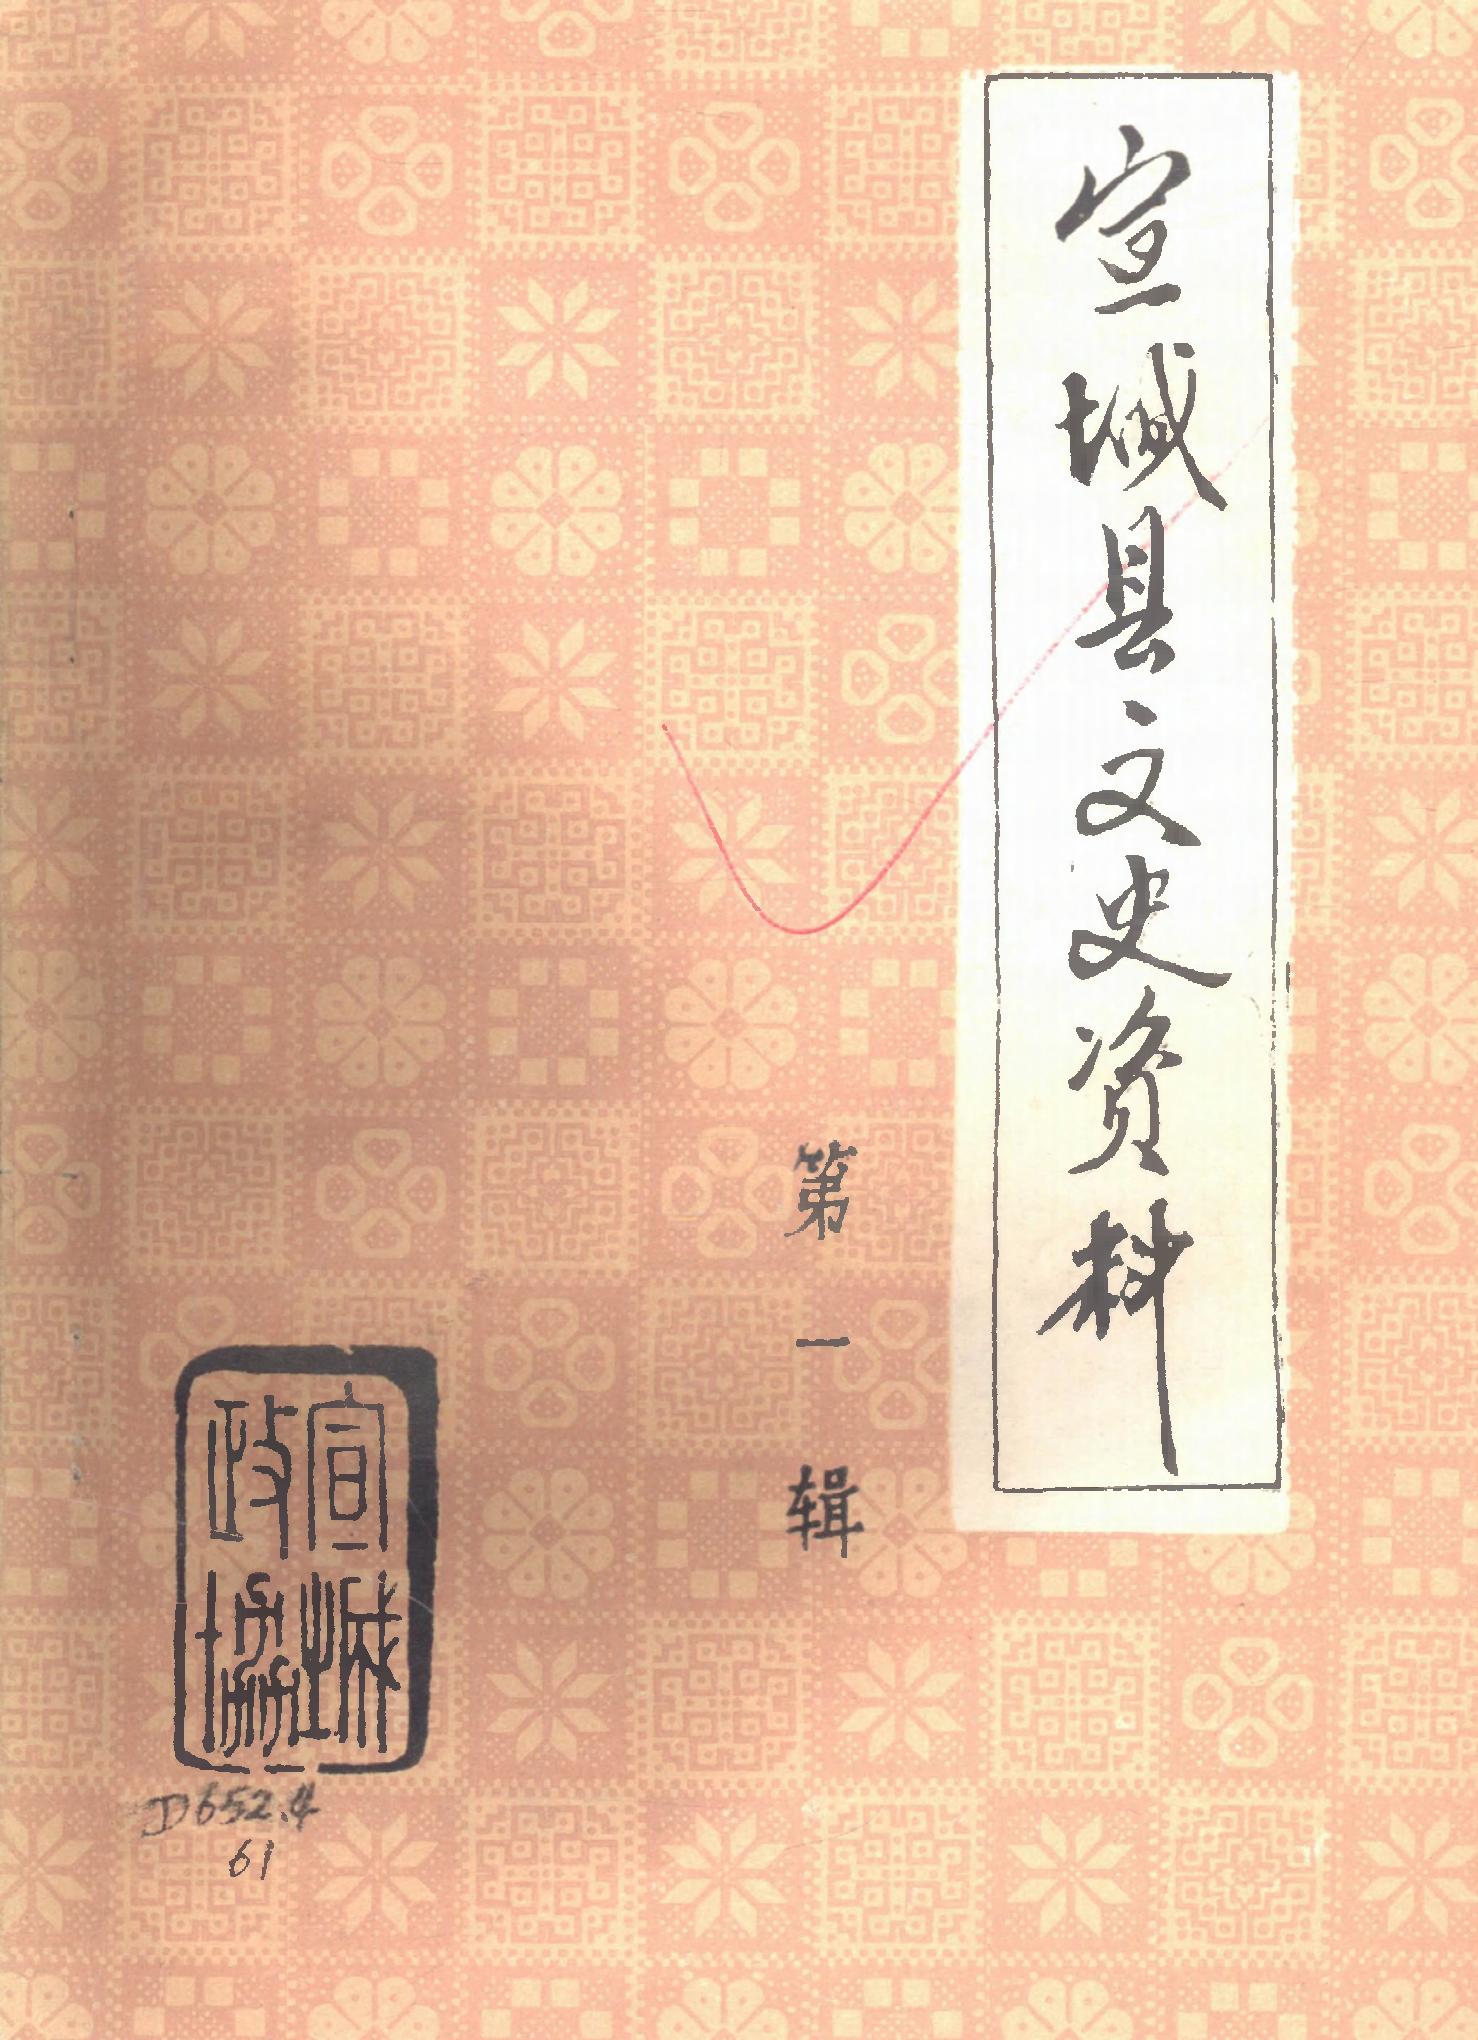 宣城县文史资料
第一辑
宣城
政協
D652.4
61